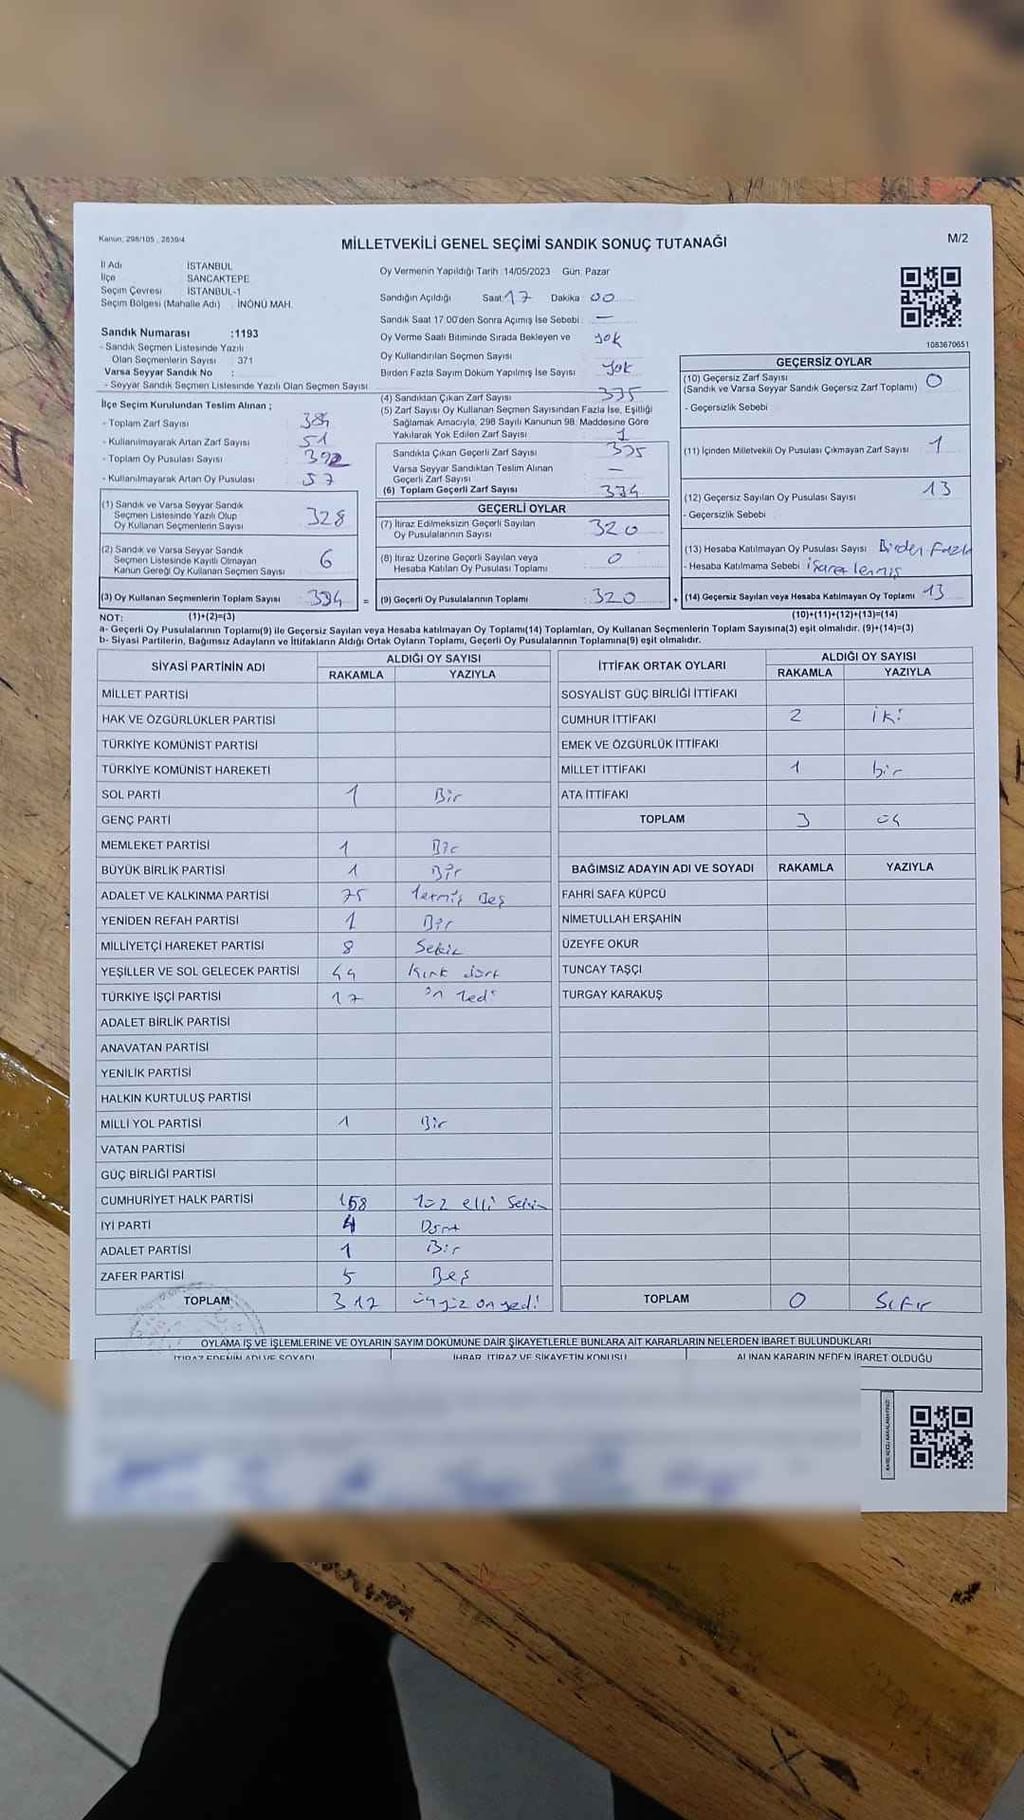 Kanun: 298/105 , 2839/4
MİLLETVEKİLİ GENEL SEÇİMİ SANDIK SONUÇ TUTANAĞI
M/2
İl Adı İSTANBUL
İlçe SANCAKTEPE
Seçim Çevresi İSTANBUL-1
Seçim Bölgesi (Mahalle Adı) İNÖNÜ MAH.
Sandık Numarası :1193
- Sandık Seçmen Listesinde Yazılı
Olan Seçmenlerin Sayısı 371
Varsa Seyyar Sandık No :
- Seyyar Sandık Seçmen Listesinde Yazılı Olan Seçmen Sayısı
İlçe Seçim Kurulundan Teslim Alınan ;
- Toplam Zarf Sayısı
- Kullanılmayarak Artan Zarf Sayısı 51
- Toplam Oy Pusulası Sayısı 392
- Kullanılmayarak Artan Oy Pusulası 57
(1) Sandık ve Varsa Seyyar Sandık
Seçmen Listesinde Yazılı Olup
Oy Kullanan Seçmenlerin Sayısı 328
(2) Sandık ve Varsa Seyyar Sandık
Seçmen Listesinde Kayıtlı Olmayan
Kanun Gereği Oy Kullanan Seçmen Sayısı 6
(3) Oy Kullanan Seçmenlerin Toplam Sayısı 334 =
Oy Vermenin Yapıldığı Tarih 14/05/2023 Gün: Pazar
Sandığın Açıldığı Saat 17 Dakika 00
Sandık Saat 17:00'den Sonra Açımış İse Sebebi : —
Oy Verme Saati Bitiminde Sırada Bekleyen ve
Oy Kullandırılan Seçmen Sayısı yok
Birden Fazla Sayım Döküm Yapılmış İse Sayısı yok
(4) Sandıktan Çıkan Zarf Sayısı 335
(5) Zarf Sayısı Oy Kullanan Seçmen Sayısından Fazla İse, Eşitliği
Sağlamak Amacıyla, 298 Sayılı Kanunun 98. Maddesine Göre
Yakılarak Yok Edilen Zarf Sayısı 1
Sandıkta Çıkan Geçerli Zarf Sayısı 335
Varsa Seyyar Sandıktan Teslim Alınan
Geçerli Zarf Sayısı —
(6) Toplam Geçerli Zarf Sayısı 334
GEÇERLİ OYLAR
(7) İtiraz Edilmeksizin Geçerli Sayılan
Oy Pusulalarının Sayısı 320
(8) İtiraz Üzerine Geçerli Sayılan veya
Hesaba Katılan Oy Pusulası Toplamı 0
(9) Geçerli Oy Pusulalarının Toplamı 320 +
1083670651
GEÇERSİZ OYLAR
(10) Geçersiz Zarf Sayısı 0
(Sandık ve Varsa Seyyar Sandık Geçersiz Zarf Toplamı)
- Geçersizlik Sebebi
(11) İçinden Milletvekili Oy Pusulası Çıkmayan Zarf Sayısı 1
(12) Geçersiz Sayılan Oy Pusulası Sayısı 13
- Geçersizlik Sebebi
(13) Hesaba Katılmayan Oy Pusulası Sayısı Birden Fazla
- Hesaba Katılmama Sebebi işaretlenmiş
(14) Geçersiz Sayılan veya Hesaba Katılmayan Oy Toplamı 13
NOT: (1)+(2)=(3) (10)+(11)+(12)+(13)=(14)
a- Geçerli Oy Pusulalarının Toplamı(9) ile Geçersiz Sayılan veya Hesaba katılmayan Oy Toplamı(14) Toplamları, Oy Kullanan Seçmenlerin Toplam Sayısına(3) eşit olmalıdır. (9)+(14)=(3)
b- Siyasi Partilerin, Bağımsız Adayların ve İttifakların Aldığı Ortak Oyların Toplamı, Geçerli Oy Pusulalarının Toplamına(9) eşit olmalıdır.
SİYASİ PARTİNİN ADI ALDIĞI OY SAYISI
RAKAMLA YAZIYLA
MİLLET PARTİSİ
HAK VE ÖZGÜRLÜKLER PARTİSİ
TÜRKİYE KOMÜNİST PARTİSİ
TÜRKİYE KOMÜNİST HAREKETİ
SOL PARTİ 1 Bir
GENÇ PARTİ
MEMLEKET PARTİSİ 1 Bir
BÜYÜK BİRLİK PARTİSİ 1 Bir
ADALET VE KALKINMA PARTİSİ 75 Yetmiş Beş
YENİDEN REFAH PARTİSİ 1 Bir
MİLLİYETÇİ HAREKET PARTİSİ 8 Sekiz
YEŞİLLER VE SOL GELECEK PARTİSİ 44 Kırk dört
TÜRKİYE İŞÇİ PARTİSİ 17 on Yedi
ADALET BİRLİK PARTİSİ
ANAVATAN PARTİSİ
YENİLİK PARTİSİ
HALKIN KURTULUŞ PARTİSİ
MİLLİ YOL PARTİSİ 1 Bir
VATAN PARTİSİ
GÜÇ BİRLİĞİ PARTİSİ
CUMHURİYET HALK PARTİSİ 158 Yüz elli Sekiz
İYİ PARTİ 4 Dört
ADALET PARTİSİ 1 Bir
ZAFER PARTİSİ 5 Beş
TOPLAM 317 üçyüz onyedi
İTTİFAK ORTAK OYLARI ALDIĞI OY SAYISI
RAKAMLA YAZIYLA
SOSYALİST GÜÇ BİRLİĞİ İTTİFAKI
CUMHUR İTTİFAKI 2 iki
EMEK VE ÖZGÜRLÜK İTTİFAKI
MİLLET İTTİFAKI 1 bir
ATA İTTİFAKI
TOPLAM 3 üç
BAĞIMSIZ ADAYIN ADI VE SOYADI RAKAMLA YAZIYLA
FAHRİ SAFA KÜPCÜ
NİMETULLAH ERŞAHİN
ÜZEYFE OKUR
TUNCAY TAŞÇI
TURGAY KARAKUŞ
TOPLAM 0 Sıfır
OYLAMA İŞ VE İŞLEMLERİNE VE OYLARIN SAYIM DÖKÜMÜNE DAİR ŞİKAYETLERLE BUNLARA AİT KARARLARIN NELERDEN İBARET BULUNDUKLARI
İTİRAZ EDENİN ADI VE SOYADI İHBAR, İTİRAZ VE ŞİKAYETİN KONUSU ALINAN KARARIN NEDEN İBARET OLDUĞU